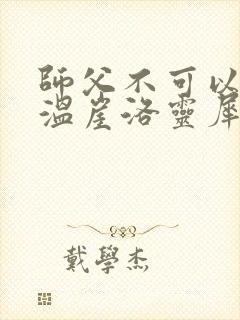 師父不可以
溫崖洛靈犀
戴學杰